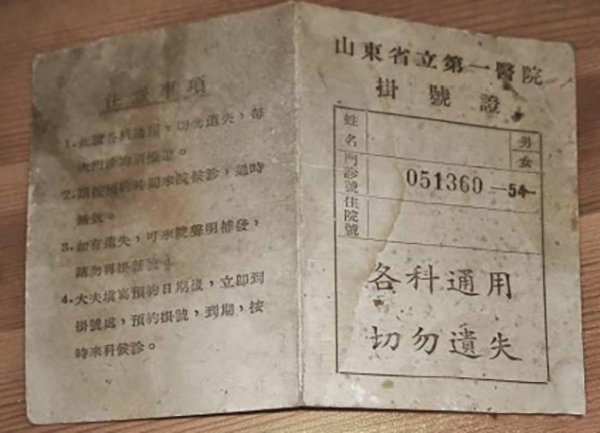 注意事項
1.此證各科通用,切勿遺失,每
次門診
2.請按預約時間來院候診,過時
無效。
3.如有遺失,可來院聲明補發,
請勿再掛
4.大夫填寫預約日期後,立即到
掛號處,預約掛號,到期,按
時來科候診。
山東省立第一醫院
掛號證
姓名 男女
門診號 051360—54—
住院號
各科通用
切勿遺失